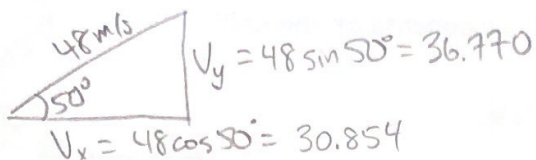 48 m/s
50°
Vy = 48 sin 50° = 36.770
Vx = 48 cos 50° = 30.854